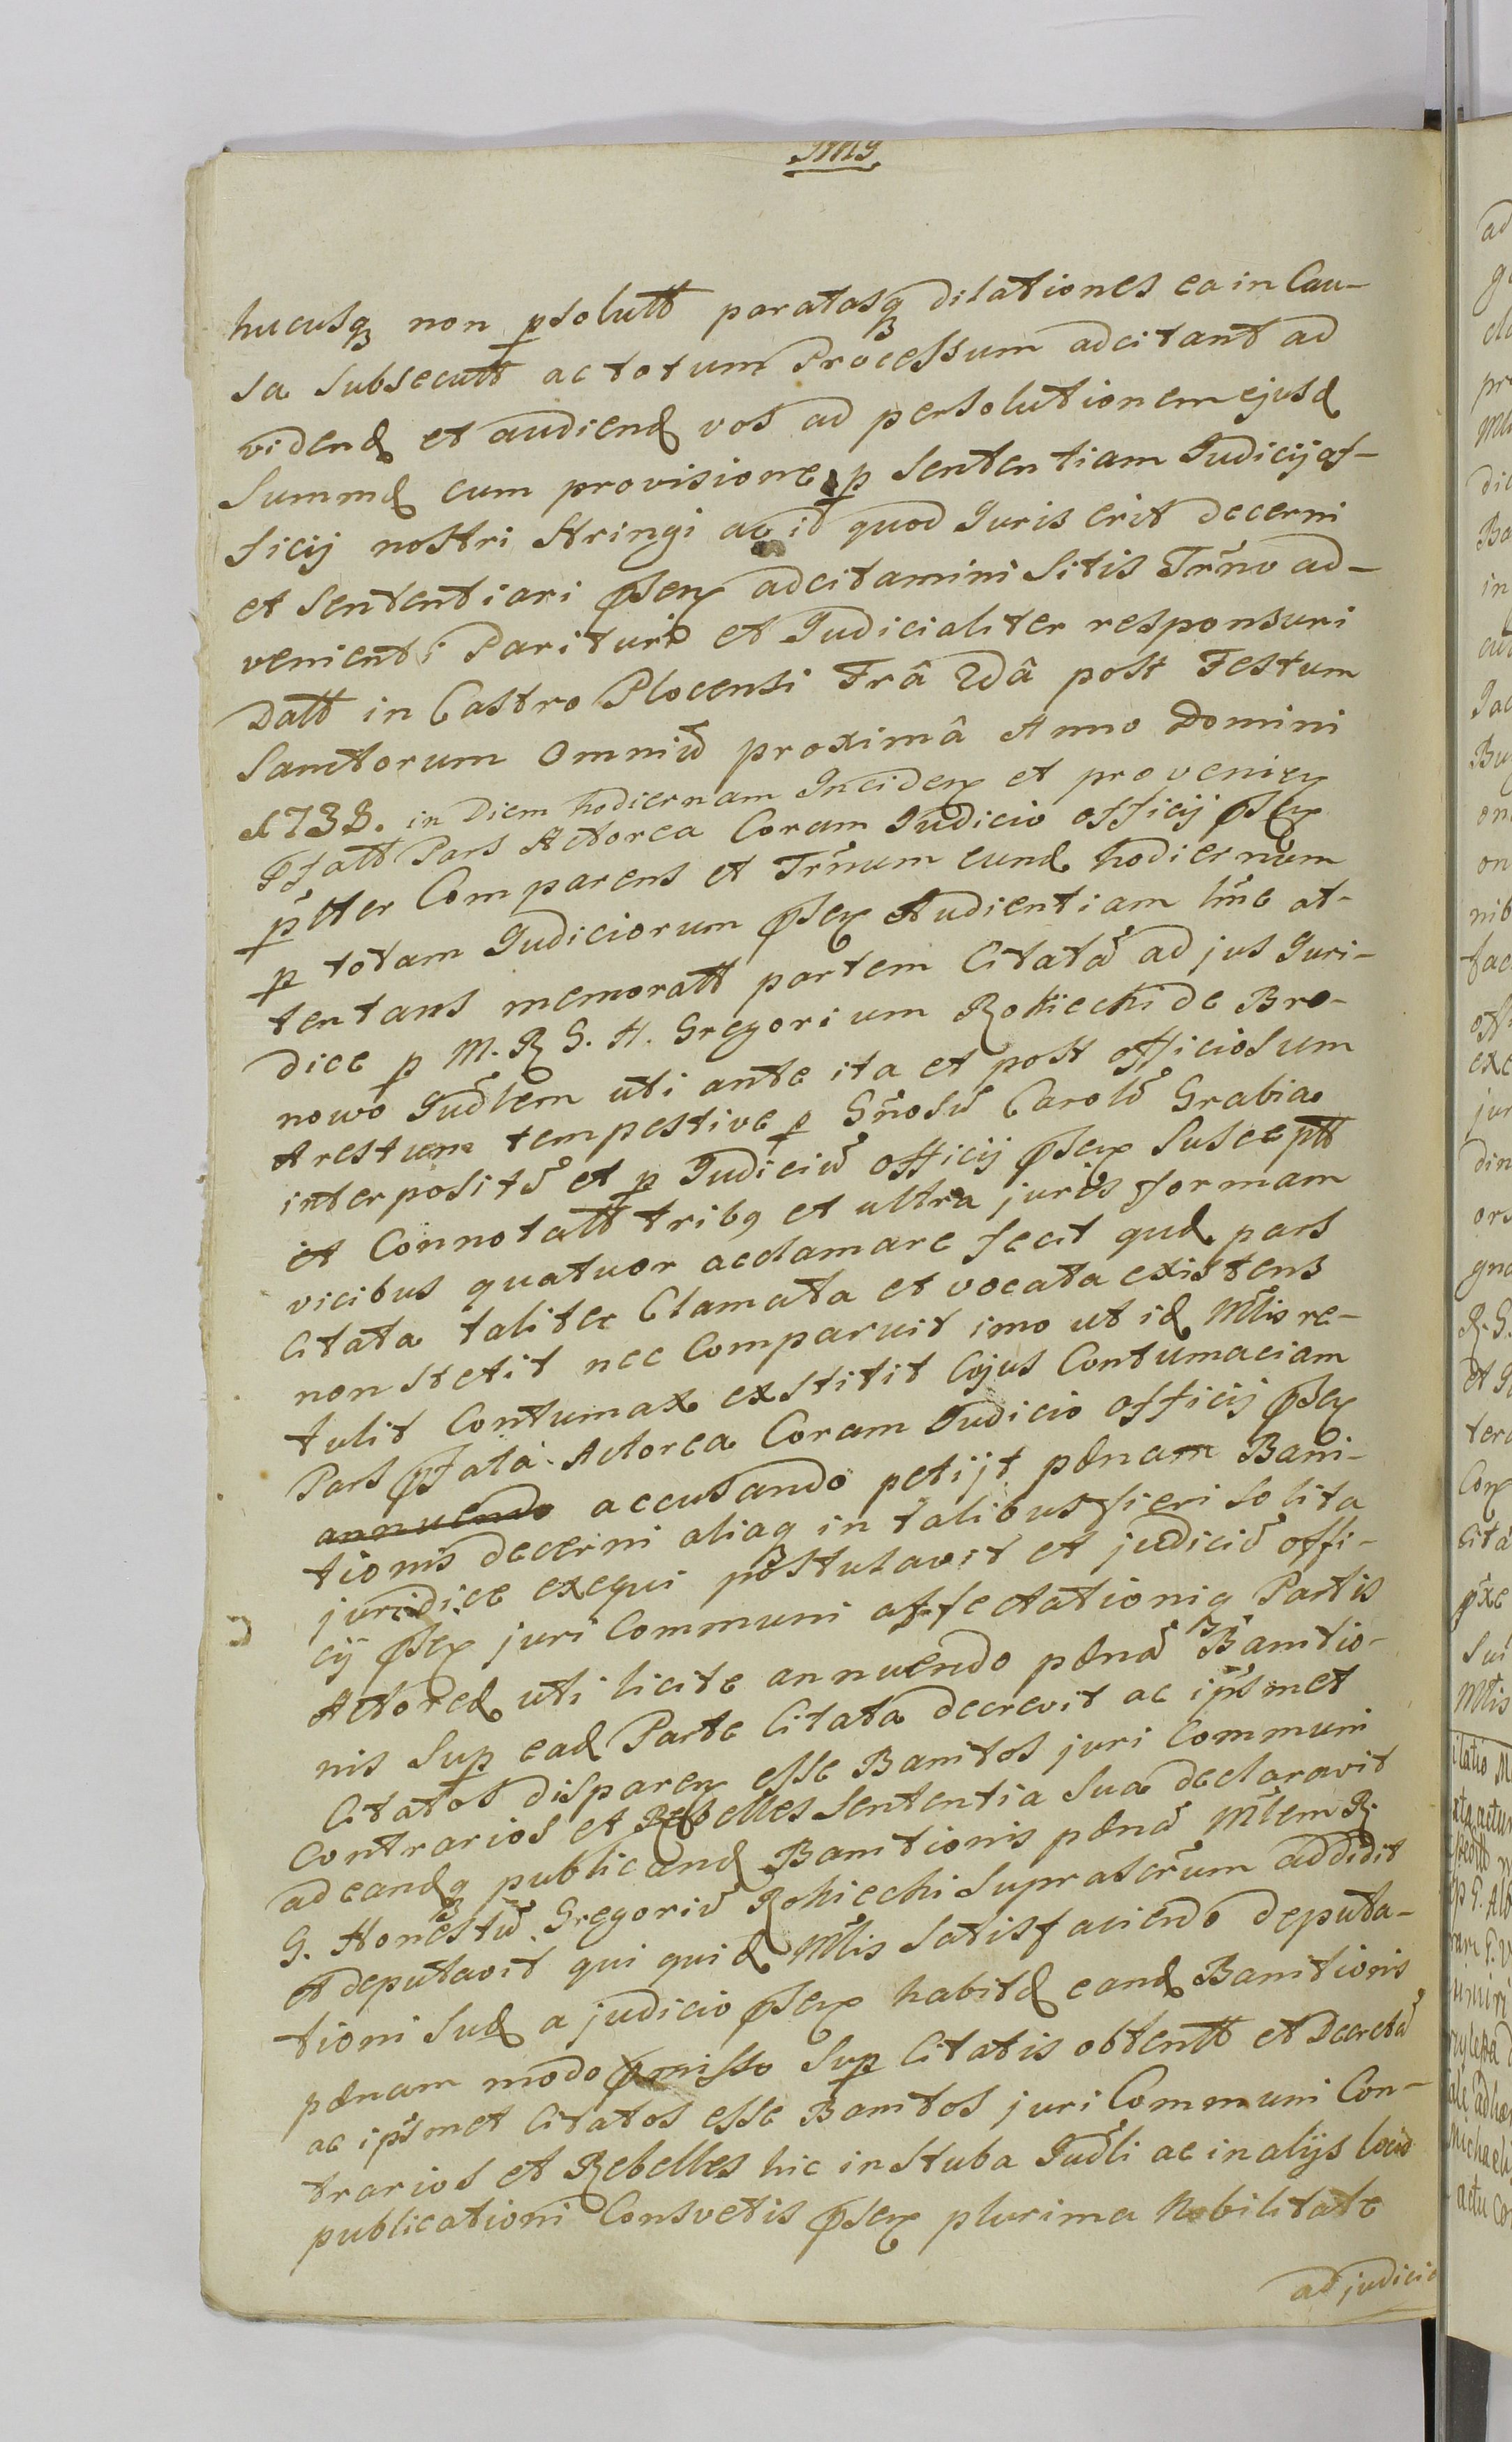 hucusq non psolutt paratasq dilationes ea in Cau-
sa subsecutt ac totum Processum adcitant ad
videnđ et audienđ vos ad persolutionem ejusđ
Summæ cum provisione p Sententiam Judicij of-
ficij nostri stringi ac id quod Juris erit decerni
et sententiari pñsen adcitamini sitis Trño ad-
venienti Parituri et Judicialiter responsuri
Datt in Castro Plocensi Frâ 2dâ post Festum
Sanctorum Omniũ proximâ Anno Domini
1738. in Diem hodiernam Inciden et provenien
Pfatt Pars Actorea Coram Judicio officij pñsen
pñtter Comparens et Trñum eunđ hodiernum
p totam Judiciorum pñsen Audientiam lñe at-
tentans memoratt partem Citatã ad jus Juri-
dice p M. R G. H. Gregorium Rokicchi de Bro-
nowo Juđlem uti ante ita et post officiosum
Arestum tempestive p Gñosũ Carolũ Grabia
interpositũ et p Judiciũ officij pñsen Susceptt
et Connotatt tribq et ultra juris formam
vicibus quatuor acclamare fecit quæ pars
Citata taliter Clamata et vocata existens
non stetit nec Comparuit imo ut iđ Mtlis re-
tulit Contumax exstitit Cujus Contumaciam
Pars pfata Actorea Coram Judicio officij pñsen
annuendo accusando petijt pænam Bani-
tionis decerni aliaq in talibus fieri solita
juridice exequi postulavit et judiciũ offi-
cij pñsen juri Communi affectationiq Partis
Actoreæ uti licite annuendo pænã Banitio-
nis Sup eađ Parte Citata decrevit ac ipsmet
Citatos disparen esse Banitos juri Communi
Contrarios et Rebelles Sententia Sua declaravit
ad eandq publicanđ Banitionis pænã Mtlem R.
G. Honestũ Gregoriũ Rokicchi Suprascrum addidit
et deputavit qui quiđ Mtlis satisfaciendo deputa-
tioni Suæ a judicio pñsen habitæ eanđ Banitionis
pænam modo pmisso Sup Citatis obtentt et Decretã
ac ipsmet Citatos esse Banitos juri Communi Con-
trarios et Rebelles hic in Stuba Juđli ac in alijs locis
publicationi Consvetis pñsen plurima Nobilitate
ad judicia